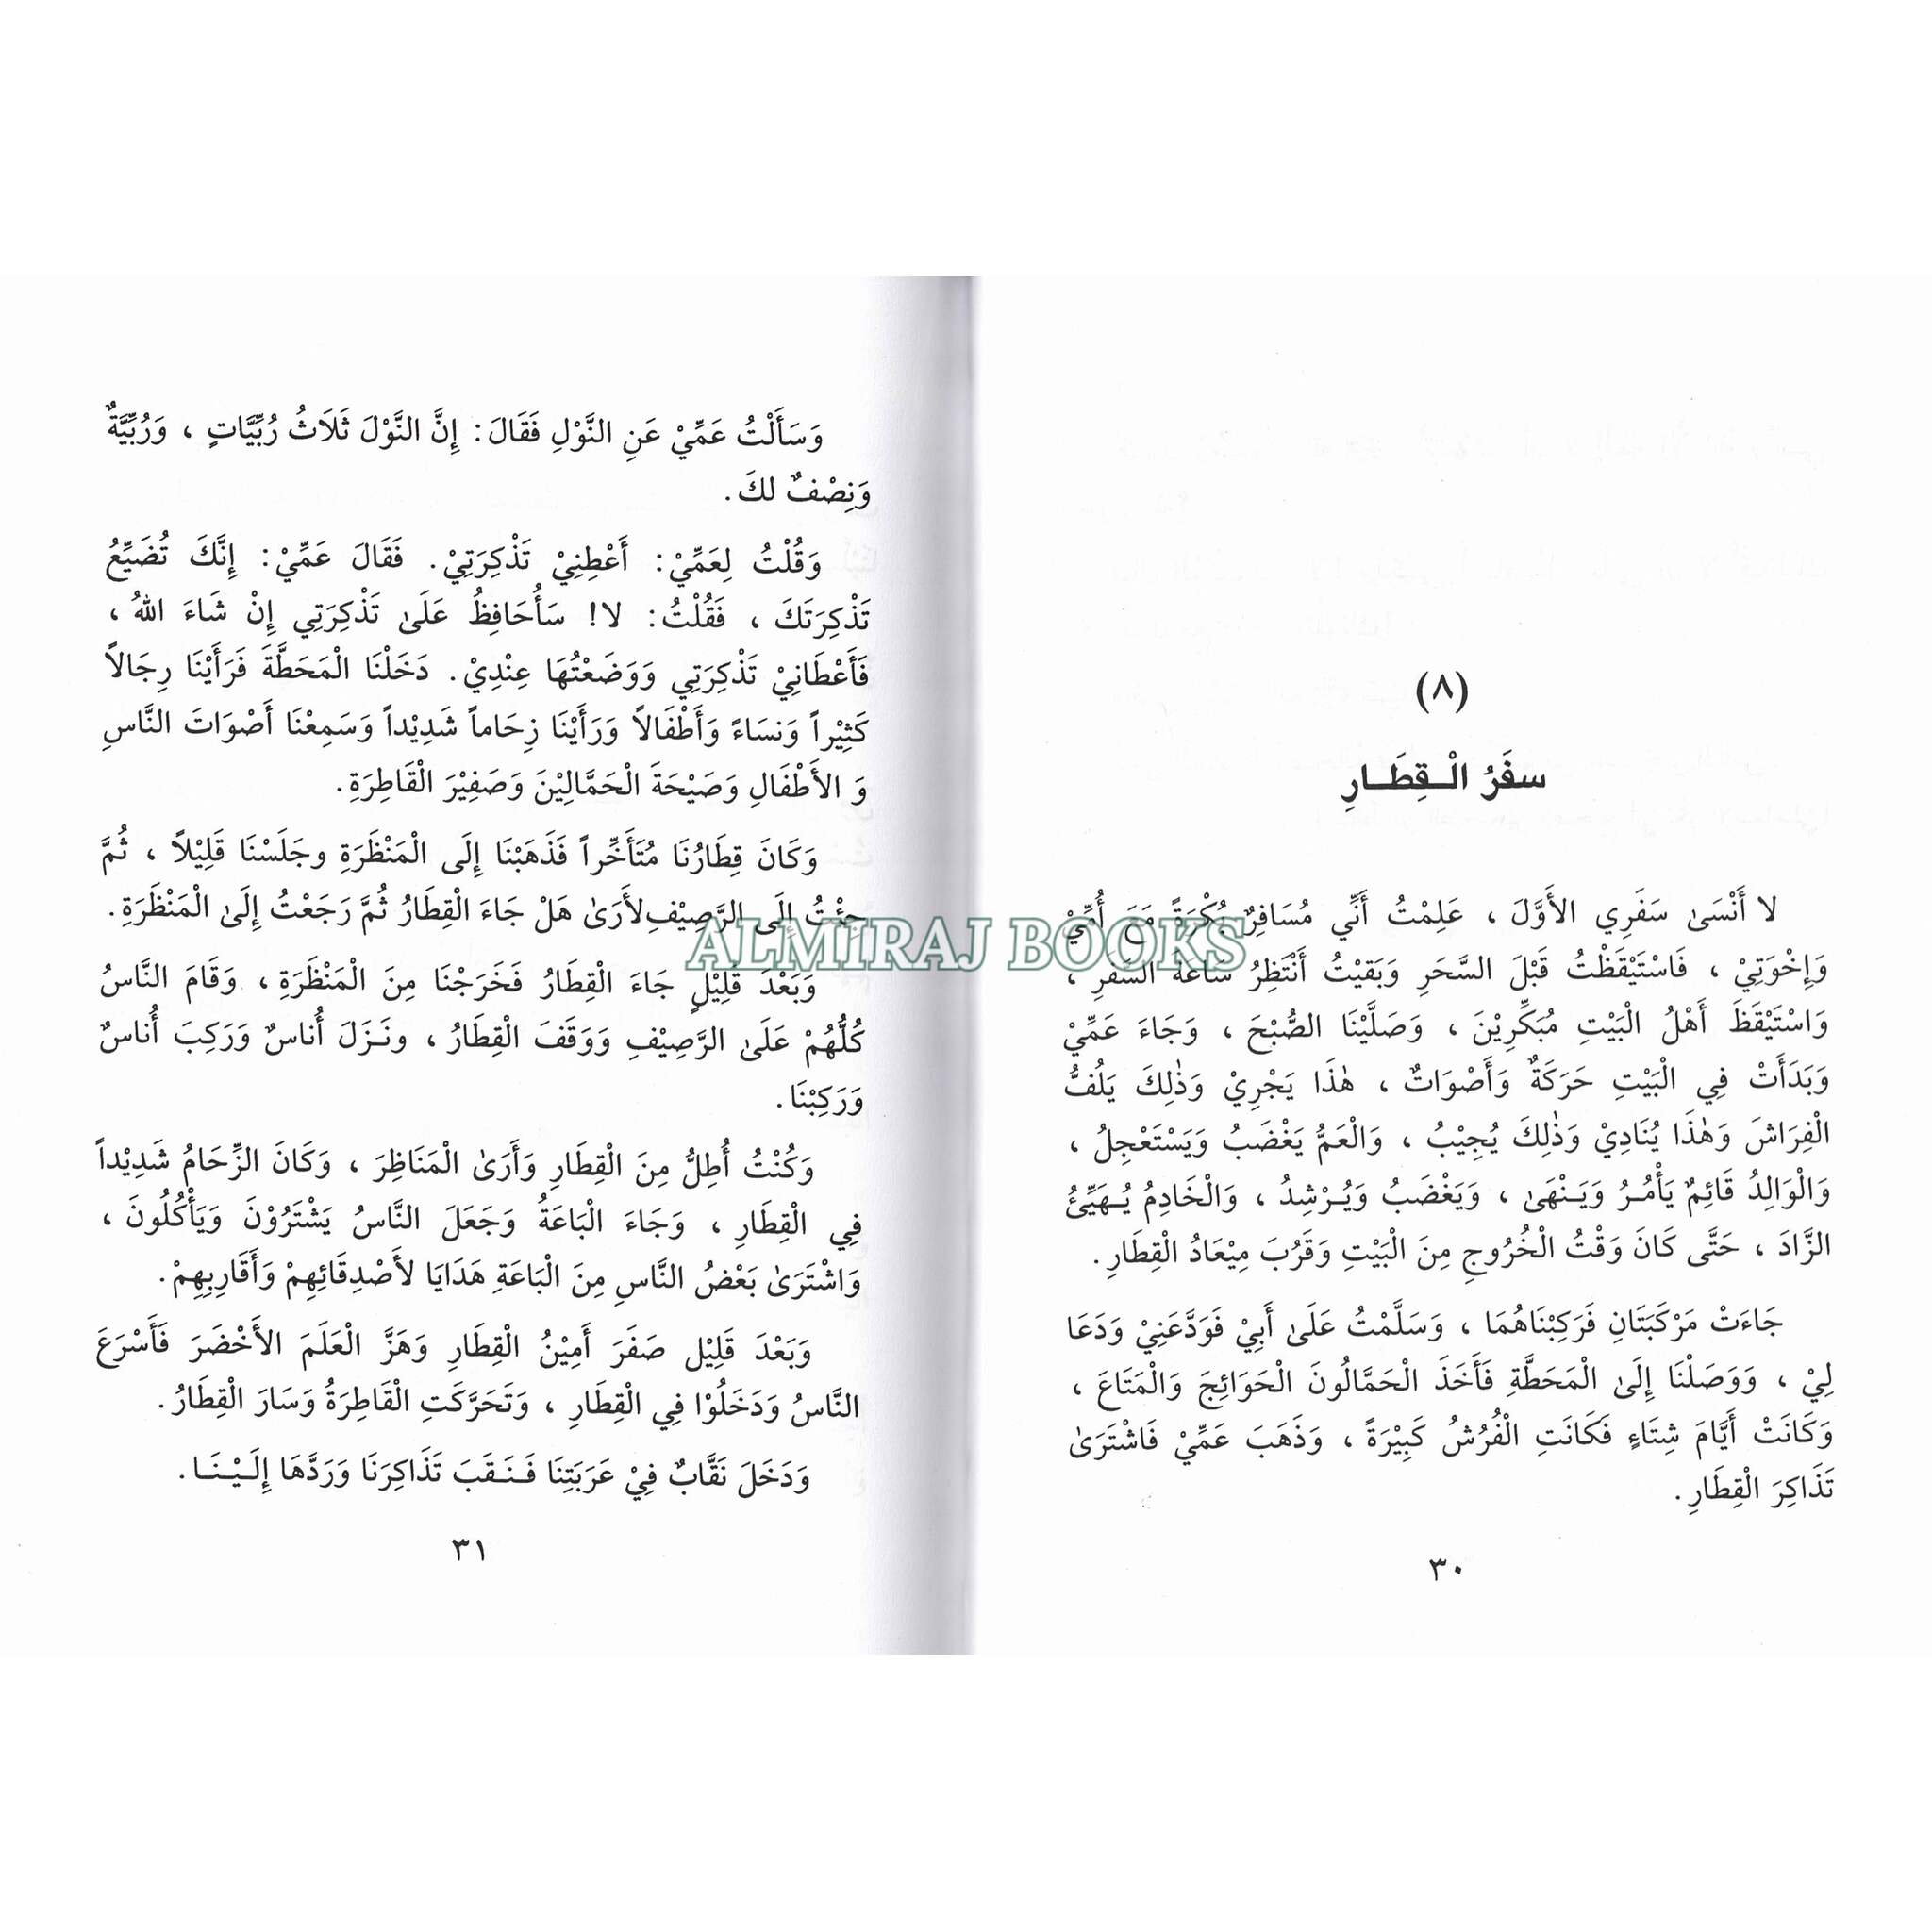 (٨)
سفَرُ الْـقِطَـارِ
لا أَنْسَىٰ سَفَرِي الأَوَّلَ ، عَلِمْتُ أَنِّي مُسَافِرٌ بُكْرَةً مَعَ أُمِّيْ
وَإِخْوَتِيْ ، فَاسْتَيْقَظْتُ قَبْلَ السَّحَرِ وَبَقيْتُ أَنْتَظِرُ سَاعَةَ السَّفَرِ ،
وَاسْتَيْقَظَ أَهْلُ الْبَيْتِ مُبَكِّرِيْنَ ، وَصَلَّيْنَا الصُّبْحَ ، وَجَاءَ عَمِّيْ
وَبَدَأَتْ فِي الْبَيْتِ حَرَكَةٌ وَأَصْوَاتٌ ، هٰذَا يَجْرِيْ وَذٰلِكَ يَلُفُّ
الْفِرَاشَ وَهٰذَا يُنَادِيْ وَذٰلِكَ يُجِيْبُ ، وَالْعَمُّ يَغْضَبُ وَيَسْتَعْجِلُ ،
وَالْوَالِدُ قَائِمٌ يَأْمُـرُ وَيَـنْهَىٰ ، وَيَغْضَبُ وَيُـرْشِدُ ، وَالْخَادِمُ يُـهَيِّئُ
الزَّادَ ، حَتَّى كَانَ وَقْتُ الْخُرُوجِ مِنَ الْبَيْتِ وَقَرُبَ مِيْعَادُ الْقِطَارِ.
جَاءَتْ مَرْكَبَتَانِ فَرَكِبْنَاهُمَا ، وَسَلَّمْتُ عَلَىٰ أَبِيْ فَوَدَّعَنِيْ وَدَعَا
لِيْ ، وَوَصَلْنَا إِلَىٰ الْمَحَطَّةِ فَأَخَذَ الْحَمَّالُونَ الْحَوَائِجَ وَالْمَتَاعَ ،
وَكَانَتْ أَيَّامَ شِتَاءٍ فَكَانَتِ الْفُرُشُ كَبِيْرَةً ، وَذَهَبَ عَمِّيْ فَاشْتَرَىٰ
تَذَاكِرَ الْقِطَارِ.
٣٠
وَسَأَلْتُ عَمِّيْ عَنِ النَّوْلِ فَقَالَ: إِنَّ النَّوْلَ ثَلَاثُ رُبِّيَّاتٍ ، وَرُبِّيَّةٌ
وَنِصْفٌ لكَ.
وَقُلْتُ لِعَمِّيْ: أَعْطِنِيْ تَذْكِرَتِيْ. فَقَالَ عَمِّيْ: إِنَّكَ تُضَيِّعُ
تَذْكِرَتَكَ ، فَقُلْتُ: لا! سَأُحَافِظُ عَلَىٰ تَذْكِرَتِي إِنْ شَاءَ اللهُ ،
فَأَعْطَانِيْ تَذْكِرَتِي وَوَضَعْتُهَا عِنْدِيْ. دَخَلْنَا الْمَحَطَّةَ فَرَأَيْنَا رِجَالاً
كَثِيْراً وَنسَاءً وَأَطْفَالاً وَرَأَيْنَا زِحَاماً شَدِيْداً وَسَمِعْنَا أَصْوَاتَ النَّاسِ
وَ الأَطْفَالِ وَصَيْحَةَ الْحَمَّالِيْنَ وَصَفِيْرَ الْقَاطِرَةِ.
وَكَانَ قِطَارُنَا مُتَأَخِّراً فَذَهَبْنَا إِلَى الْمَنْظَرَةِ وجَلَسْنَا قَلِيْلاً ، ثُمَّ
جِئْتُ إِلَى الرَّصِيْفِ لأَرَىٰ هَلْ جَاءَ الْقِطَارُ ثُمَّ رَجَعْتُ إِلَىٰ الْمَنْظَرَةِ.
وَبَعْدَ قَلِيْلٍ جَاءَ الْقِطَارُ فَخَرَجْنَا مِنَ الْمَنْظَرَةِ ، وَقَامَ النَّاسُ
كُلُّهُمْ عَلَىٰ الرَّصِيْفِ وَوَقَفَ الْقِطَارُ ، ونَـزَلَ أُناسٌ وَرَكِبَ أُناسٌ
وَرَكِبْنَا.
وَكُنْتُ أُطِلُّ مِنَ الْقِطَارِ وَأَرَىٰ الْمَنَاظِرَ ، وَكَانَ الزِّحَامُ شَدِيْداً
فِي الْقِطَارِ ، وَجَاءَ الْبَاعَةُ وَجَعَلَ النَّاسُ يَشْتَرُوْنَ وَيَأْكُلُونَ ،
وَاشْتَرَىٰ بَعْضُ النَّاسِ مِنَ الْبَاعَةِ هَدَايَا لأَصْدِقَائِهِمْ وَأَقَارِبِهِمْ.
وَبَعْدَ قَلِيْل صَفَرَ أَمِيْنُ الْقِطَارِ وَهَزَّ الْعَلَمَ الأَخْضَرَ فَأَسْرَعَ
النَّاسُ وَدَخَلُوْا فِي الْقِطَارِ ، وَتَحَرَّكَتِ الْقَاطِرَةُ وَسَارَ الْقِطَارُ.
وَدَخَلَ نَقَّابٌ فِيْ عَرَبَتِنَا فَـنَـقَبَ تَذَاكِرَنَا وَرَدَّهَا إِلَـيْـنَـا.
٣١
ALMIRAJ BOOKS